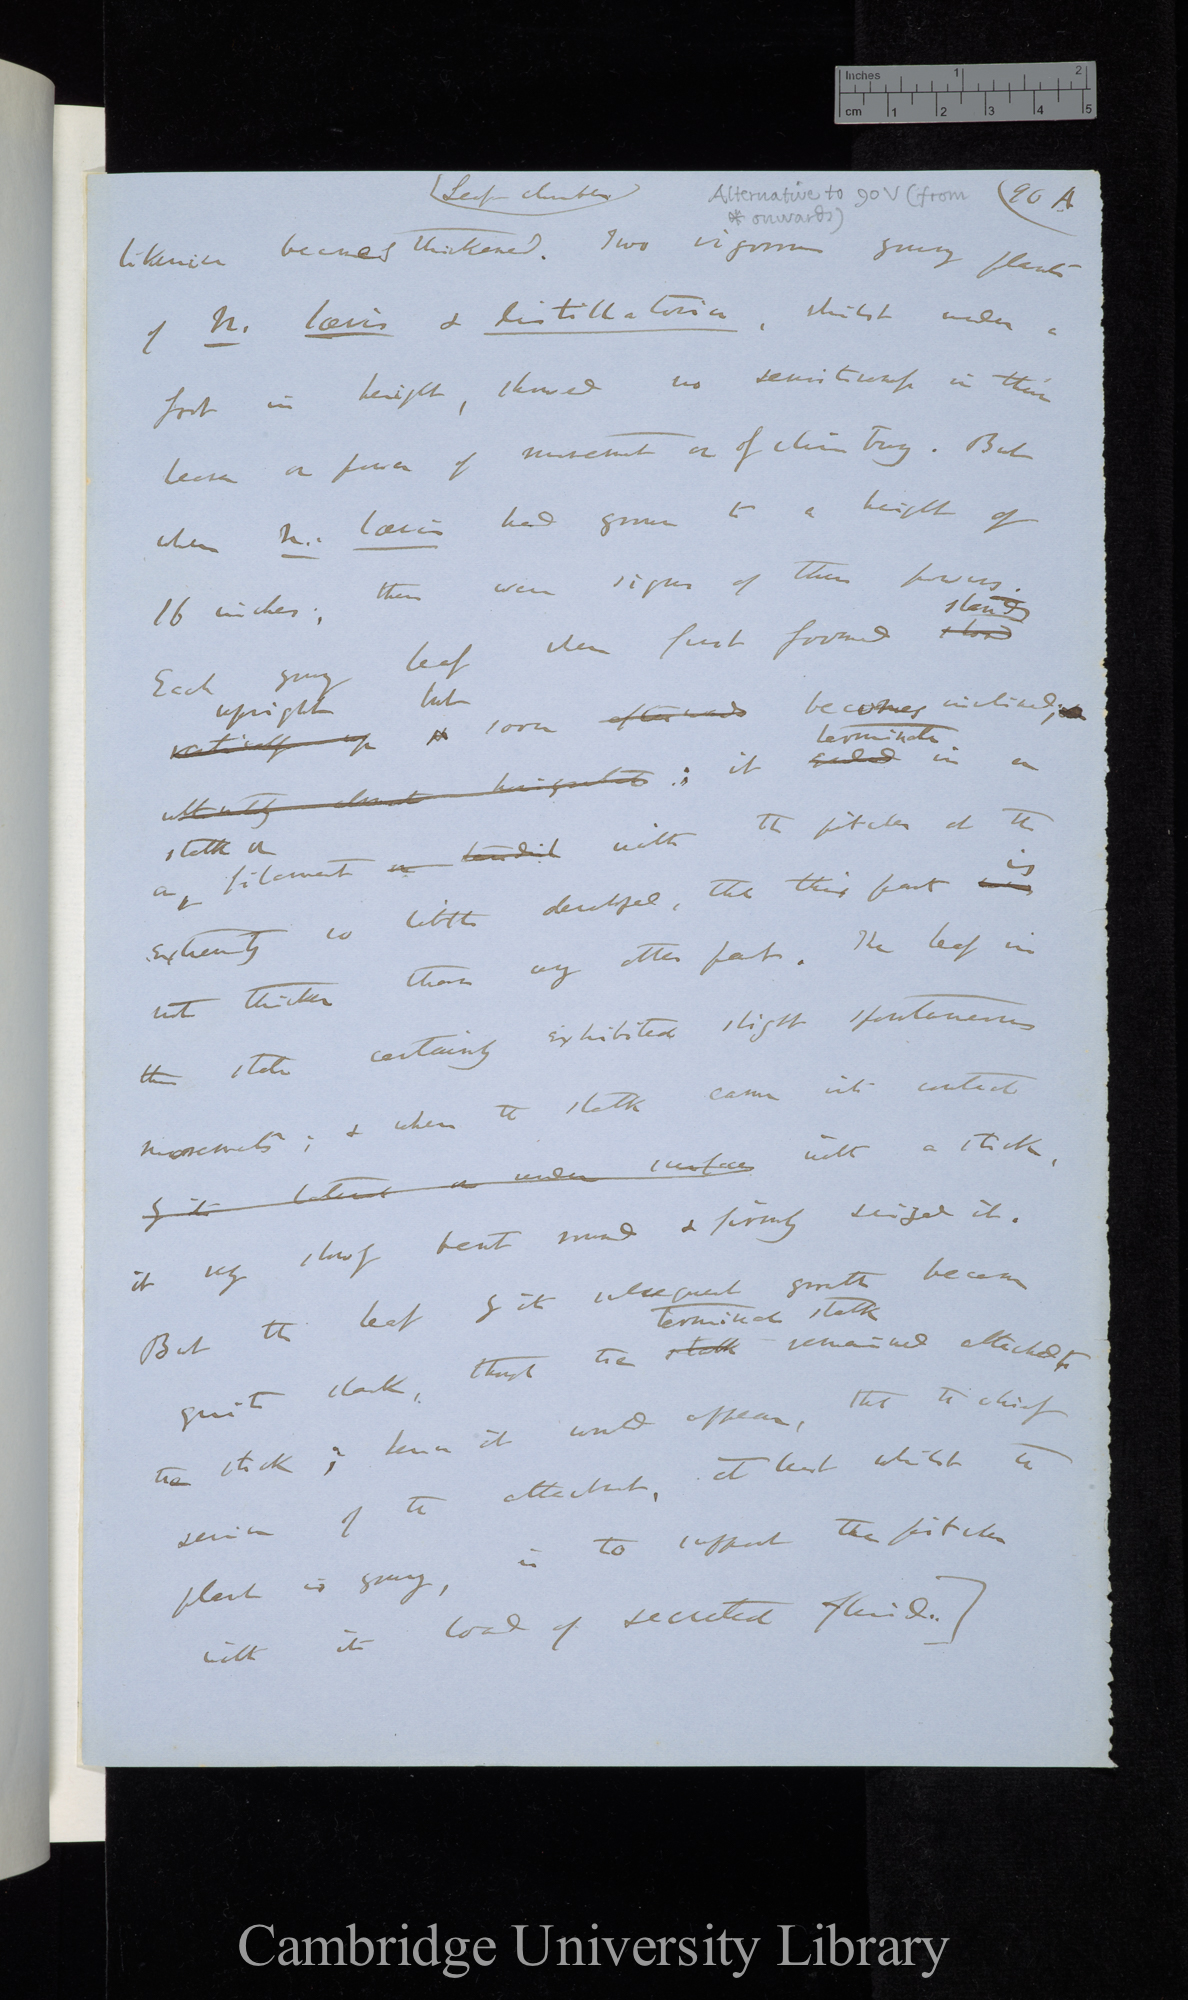 Inches 1 2
cm 1 2 3 4 5
(Leaf climbers)
Alternative to 90V (from
* onwards)
90 A
likewise becomes thickened. Two vigorous young plants
of N. lævis & distillatoria, whilst under a
foot in height, showed no sensitiveness in their
leaves or power of movement or of climbing. But
when N. lævis had grown to a height of
16 inches, there were signs of these powers.
stands
Each young leaf when first formed stood
upright but
vertically up soon afterwards becomes inclined;
terminates
ultimately almost horizontal; it ended in
stalk or
a filament or tendril with the pitcher at the
is
extremity so little developed, that this part was
not thicker than any other part. The leaf in
this state certainly exhibited slight spontaneous
movements; & when the stalk came into contact
by its lateral or under surface with a stick,
it very slowly bent round & firmly seized it.
But the leaf by its subsequent growth became
terminal stalk
quite slack, though the stalk remained attached to
the stick; hence it would appear, that the chief
service of the attachment, at least whilst the
plant is young, is to support the pitcher
with its load of secreted fluid.]
Cambridge University Library